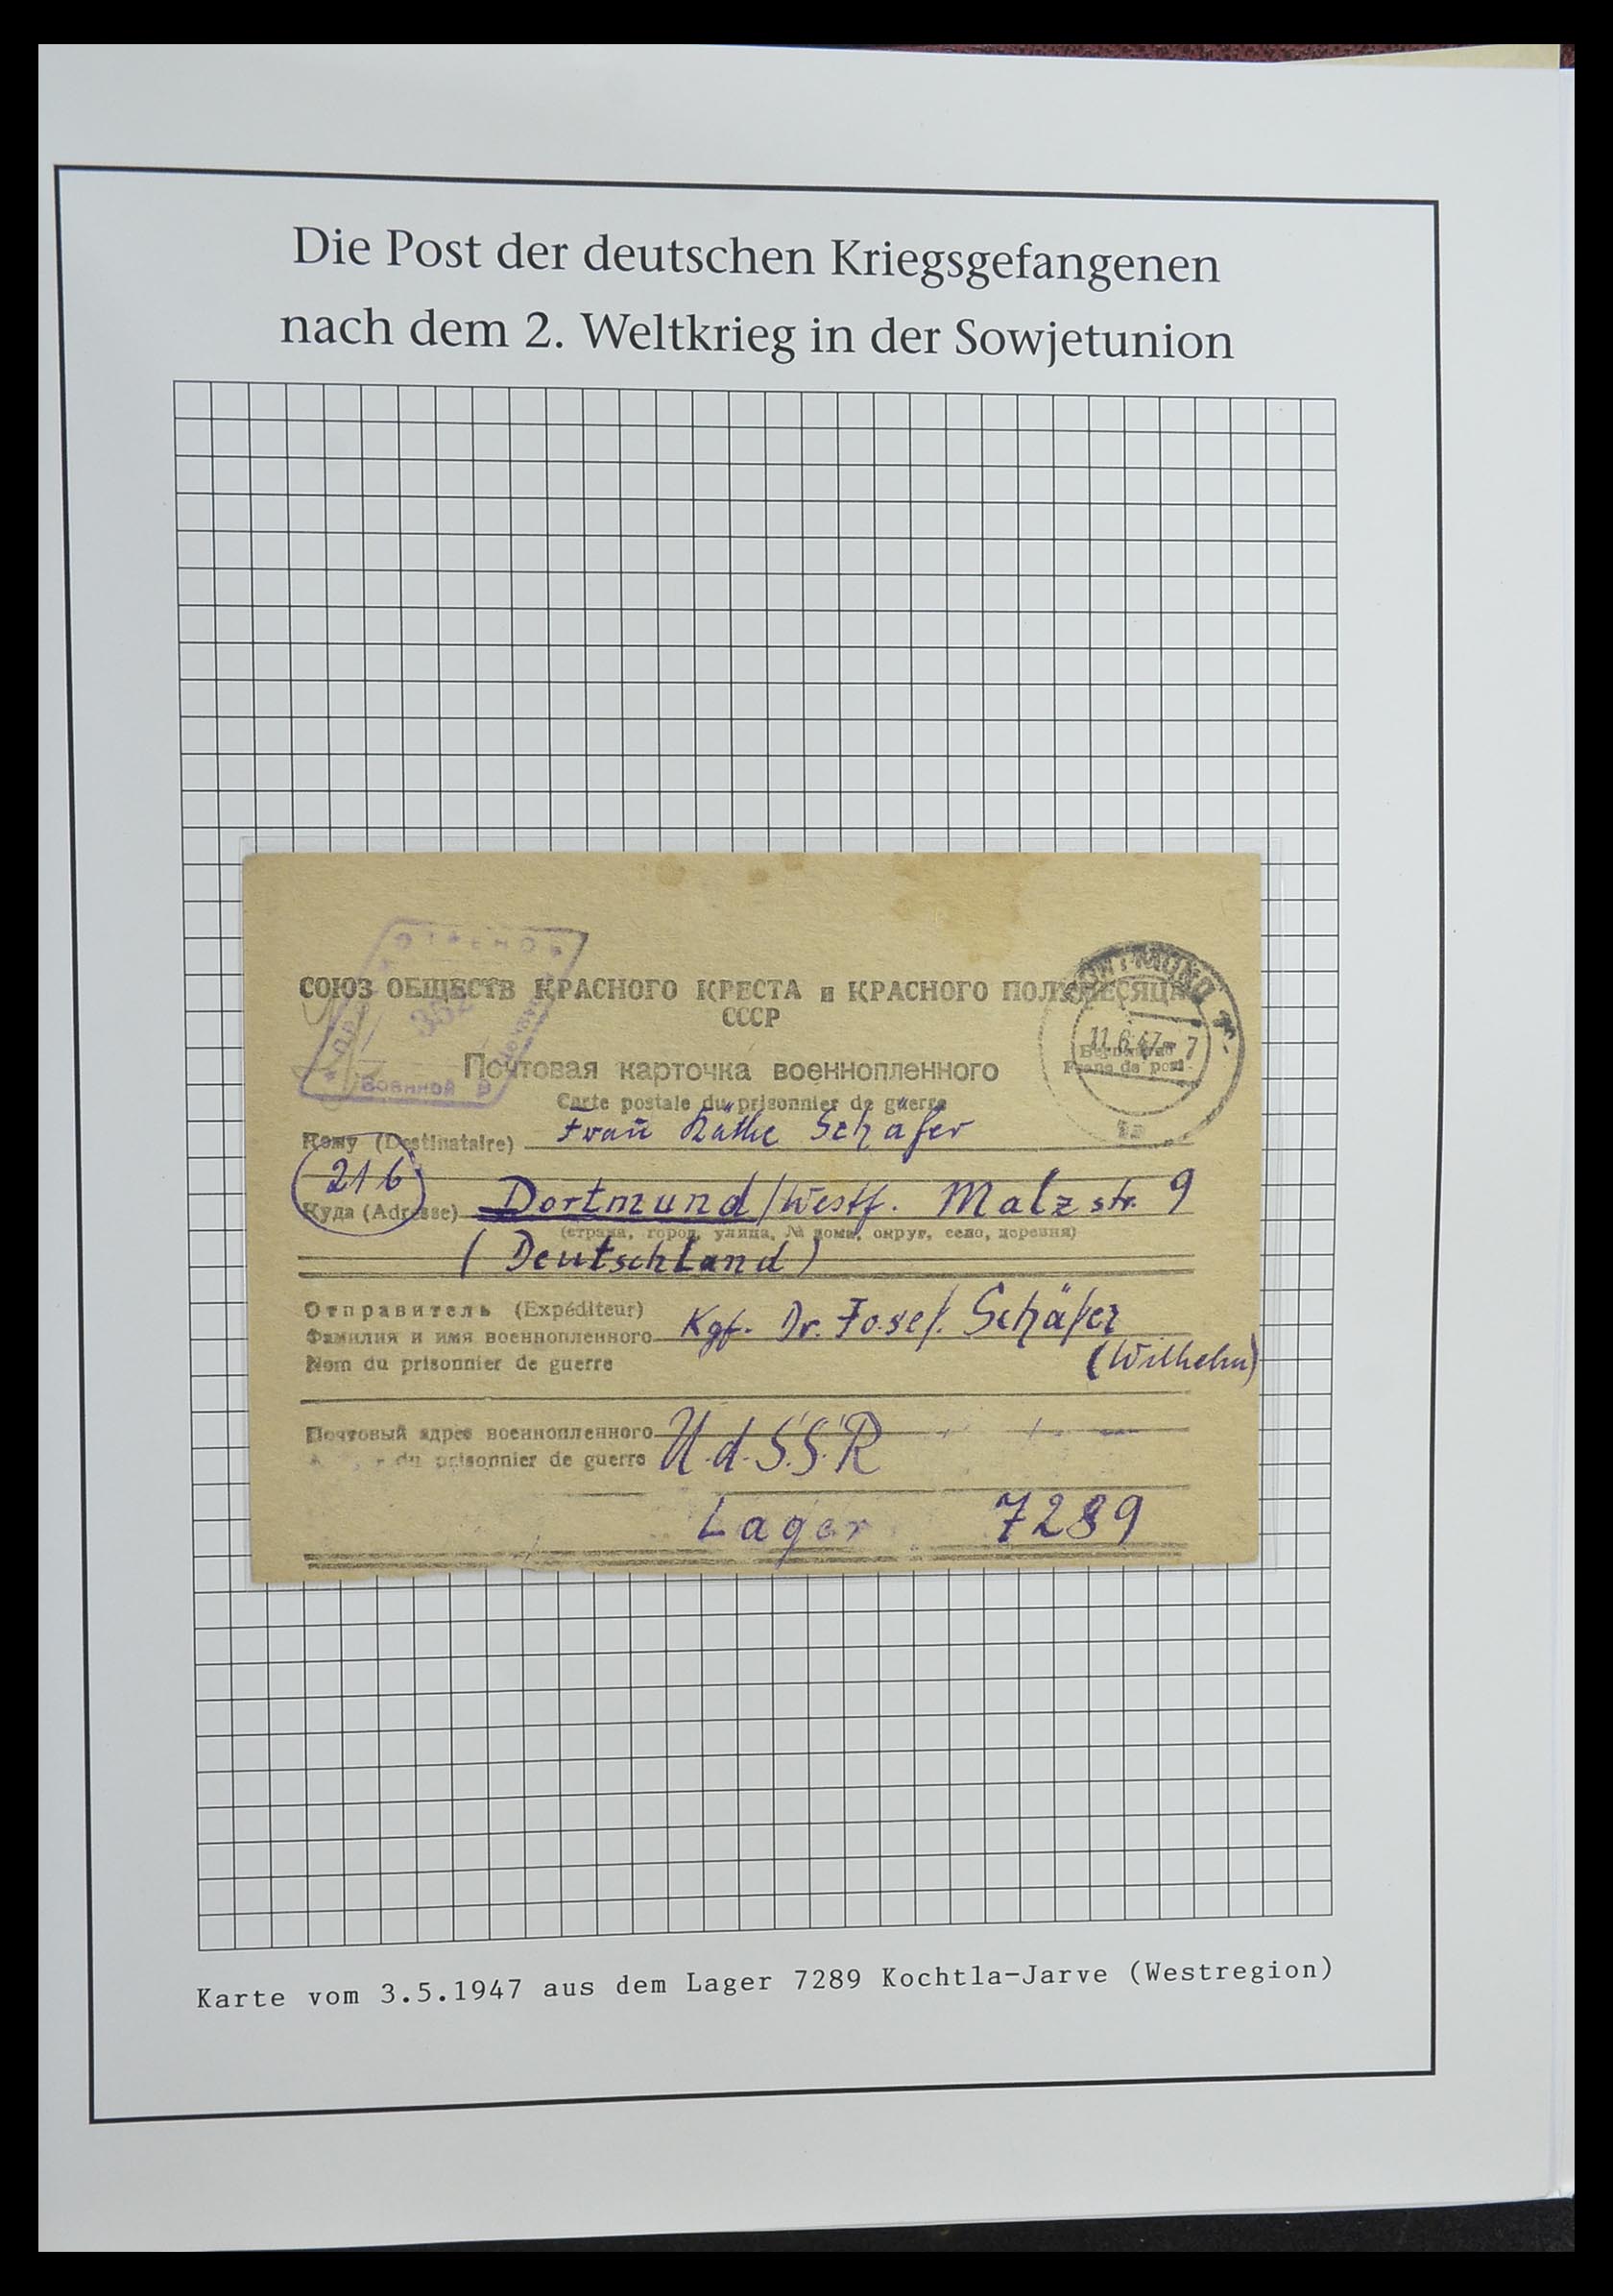 Die Post der deutschen Kriegsgefangenen
nach dem 2. Weltkrieg in der Sowjetunion
СОЮЗ ОБЩЕСТВ КРАСНОГО КРЕСТА и КРАСНОГО ПОЛУМЕСЯЦА
СССР
DORTMUND
11.6.47-7
1a
ВОЕННОЙ
Почтовая карточка военнопленного
Carte postale du prisonnier de guerre
Franc de port
Кому (Destinataire) Frau Käthe Schäfer
21b
Куда (Adresse) Dortmund/Westf. Malzstr. 9
(страна, город, улица, № дома, округ, село, деревня)
(Deutschland)
Отправитель (Expéditeur)
Фамилия и имя военнопленного Kgf. Dr. Josef Schäfer
Nom du prisonnier de guerre (Wilhelm)
Почтовый адрес военнопленного U.d.S.S.R
du prisonnier de guerre
Lager 7289
Karte vom 3.5.1947 aus dem Lager 7289 Kochtla-Jarve (Westregion)